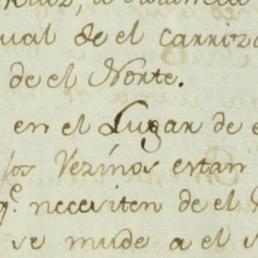 ual de el carrizo
de el Norte.
en el Lugar de e
los Vezinos estan
qe. necesiten de el
se mude a el s